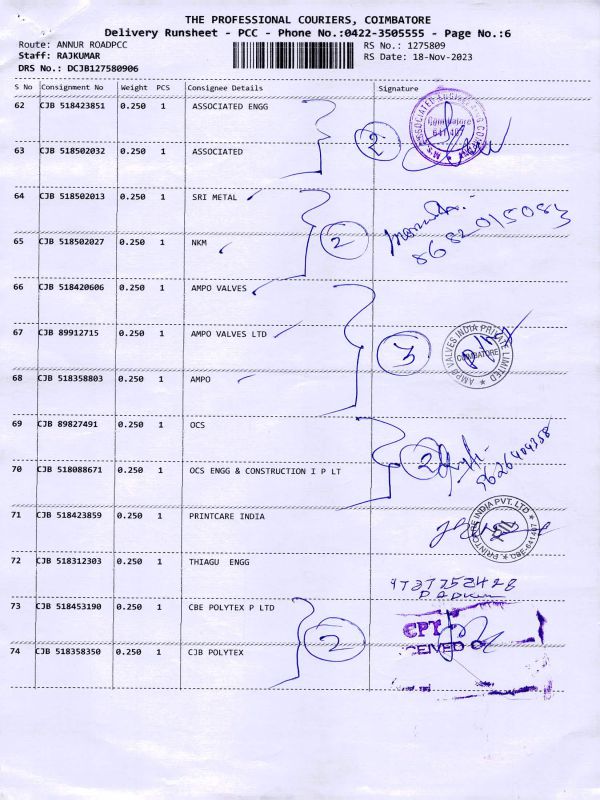 THE PROFESSIONAL COURIERS, COIMBATORE
Delivery Runsheet - PCC - Phone No.:0422-3505555 - Page No.:6
Route: ANNUR ROADPCC
RS No.: 1275809
Staff: RAJKUMAR
RS Date: 18-Nov-2023
DRS No.: DCJB127580906
S No Consignment No Weight PCS Consignee Details Signature
62 CJB 518423851 0.250 1 ASSOCIATED ENGG
63 CJB 518502032 0.250 1 ASSOCIATED
2
Coimbatore
641 407
64 CJB 518502013 0.250 1 SRI METAL
65 CJB 518502027 0.250 1 NKM
2
8682015083
66 CJB 518420606 0.250 1 AMPO VALVES
67 CJB 89912715 0.250 1 AMPO VALVES LTD
68 CJB 518358803 0.250 1 AMPO
3
AMPO VALVES INDIA PRIVATE LIMITED
COIMBATORE
69 CJB 89827491 0.250 1 OCS
70 CJB 518088671 0.250 1 OCS ENGG & CONSTRUCTION I P LT
2
71 CJB 518423859 0.250 1 PRINTCARE INDIA
PRINTCARE INDIA PVT. LTD
CBE-641407
72 CJB 518312303 0.250 1 THIAGU ENGG
73 CJB 518453190 0.250 1 CBE POLYTEX P LTD
74 CJB 518358350 0.250 1 CJB POLYTEX
2
CPT